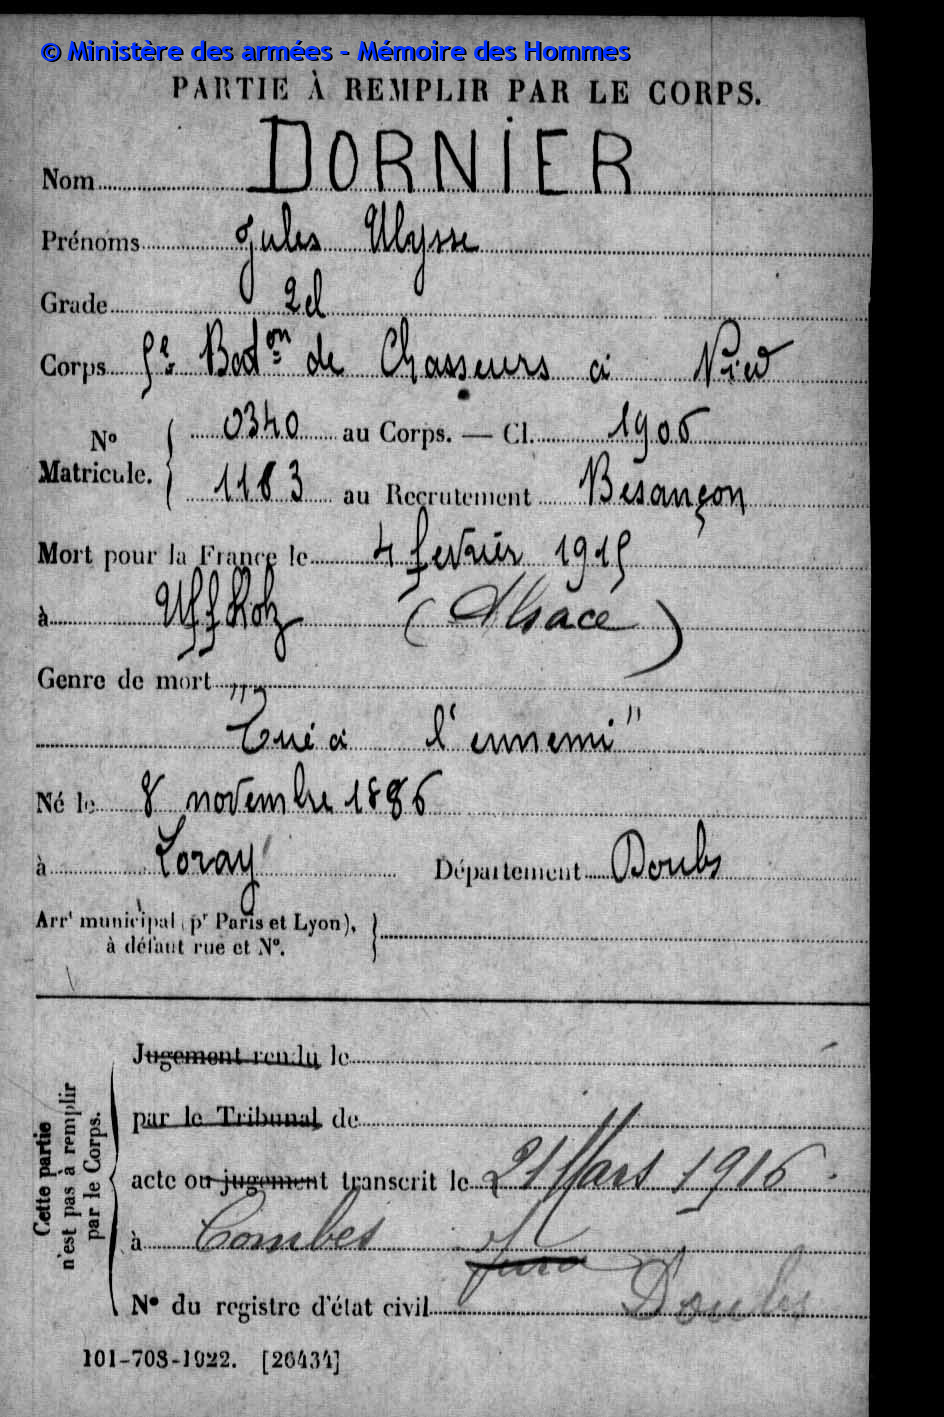 © Ministère des armées - Mémoire des Hommes
PARTIE À REMPLIR PAR LE CORPS.
Nom DORNIER
Prénoms Jules Ulysse
Grade 2cl
Corps 5e Baton de Chasseurs à Pied
No Matricule. 0340 au Corps. — Cl. 1906
1183 au Recrutement Besançon
Mort pour la France le 4 fevrier 1915
à Uffholz (Alsace)
Genre de mort
"Tué à l'ennemi"
Né le 8 novembre 1886
à Loray Département Doubs
Arrt municipal (pr Paris et Lyon),
à défaut rue et No.
Cette partie
n'est pas à remplir
par le Corps.
Jugement rendu le
par le Tribunal de
acte ou jugement transcrit le 21 Mars 1916.
à Combes Jura
Doubs
No du registre d'état civil
101-708-1922. [26434]